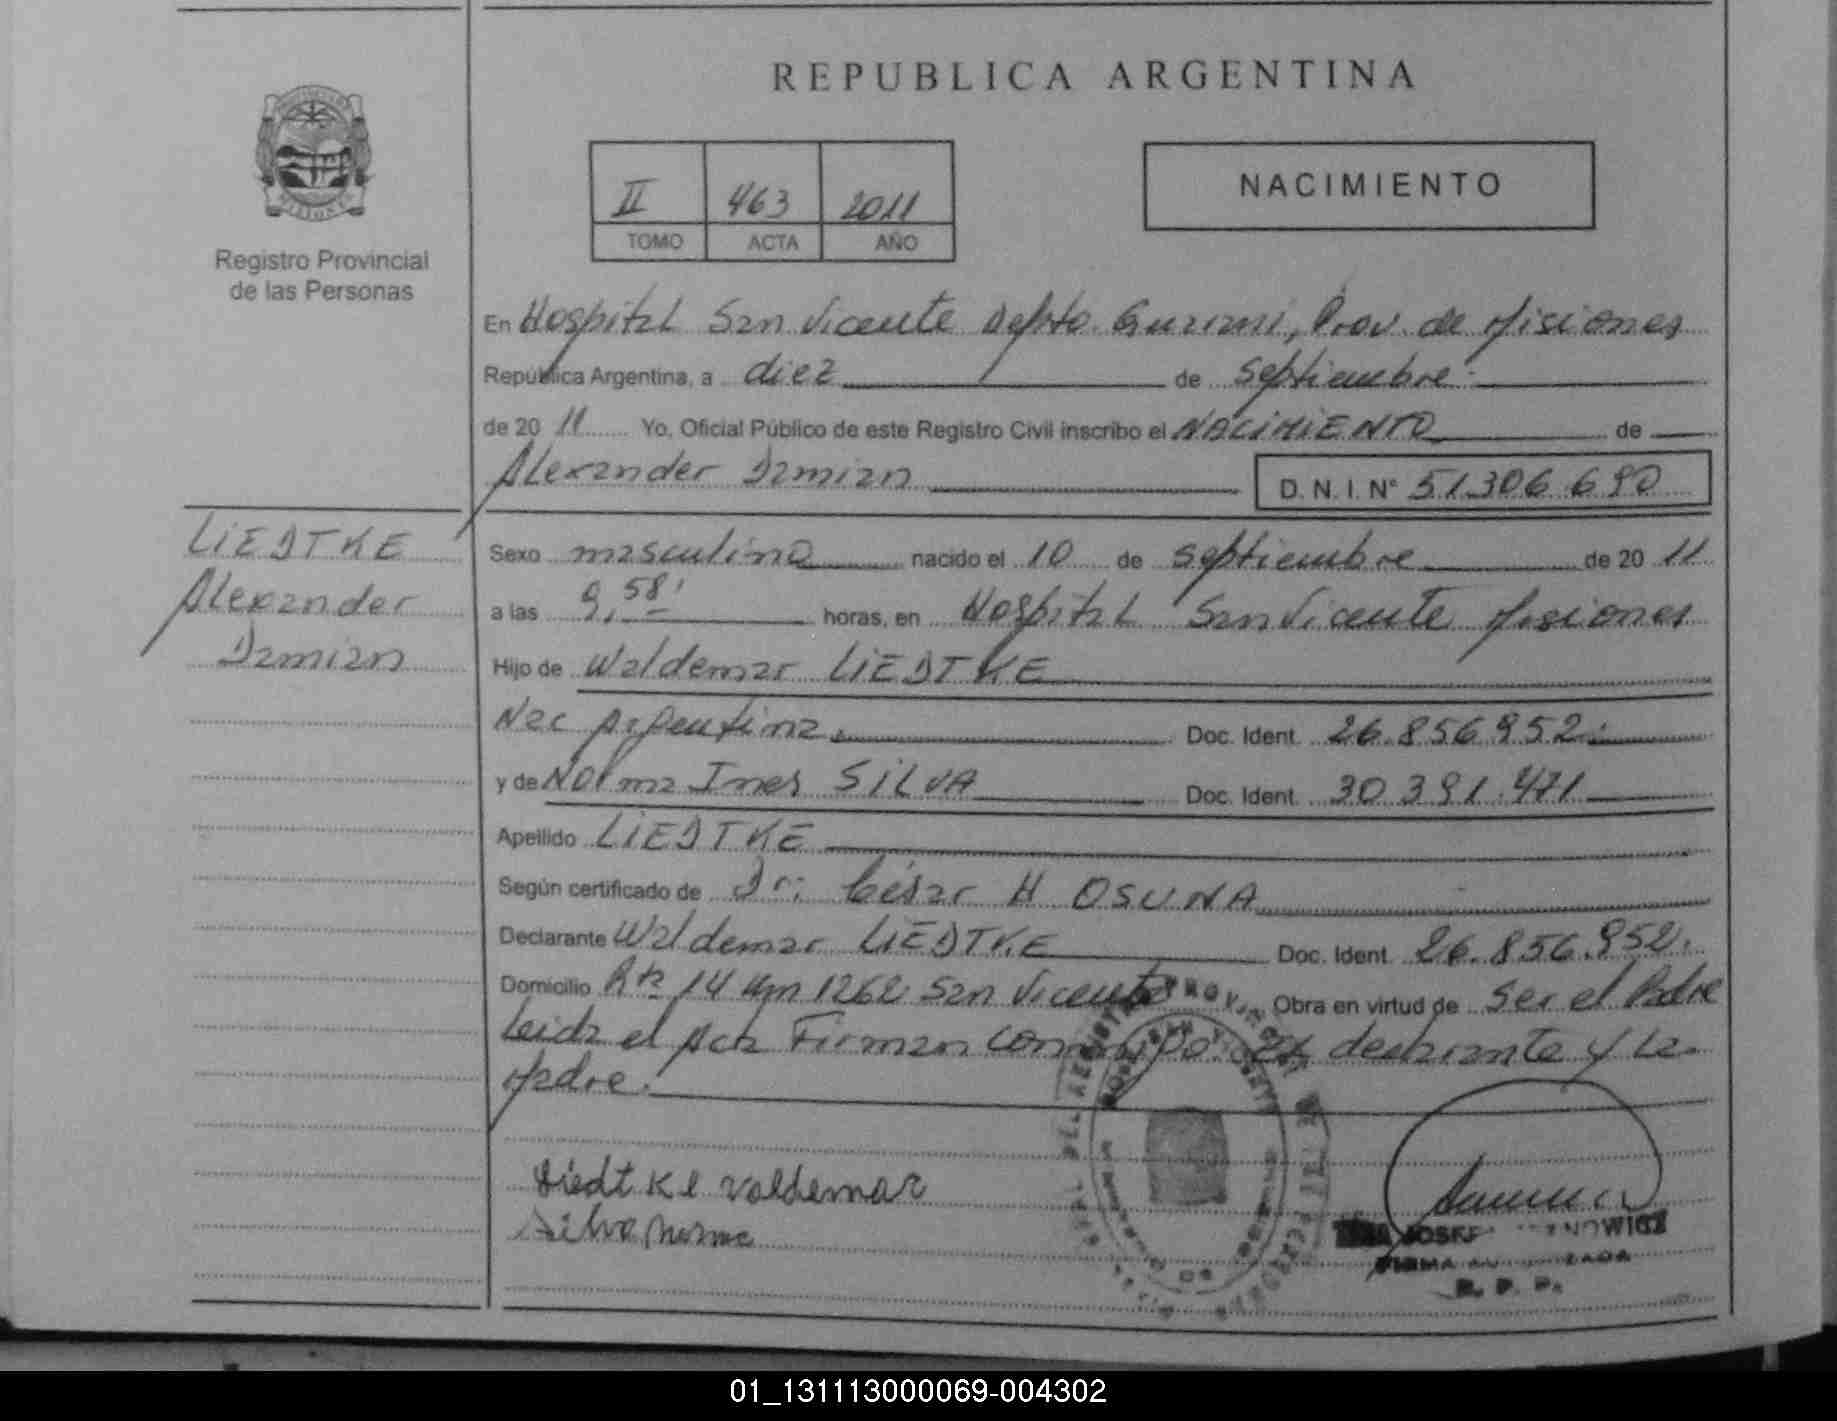 REPUBLICA ARGENTINA
PROVINCIA DE MISIONES
Registro Provincial
de las Personas
II 463 2011
TOMO ACTA AÑO
NACIMIENTO
En Hospital San Vicente Depto. Guarani, Prov. de Misiones
República Argentina, a diez de septiembre
de 20 11 Yo, Oficial Público de este Registro Civil inscribo el NACIMIENTO de
Alexander Damian D. N. I. N° 51.306.690
LIEDTKE
Alexander
Damian
Sexo masculino nacido el 10 de septiembre de 20 11
a las 9,58' horas, en Hospital San Vicente Misiones
Hijo de Waldemar LIEDTKE
Nac Argentina. Doc. Ident. 26.856.952.
y de Norma Ines SILVA Doc. Ident. 30.391.471
Apellido LIEDTKE
Según certificado de Dr: César H OSUNA
Declarante Waldemar LIEDTKE Doc. Ident. 26.856.952.
Domicilio Rta 14 Km 1262 San Vicente Obra en virtud de Ser el Padre
Leida el Acta Firman conmigo el declarante y la
Madre.
Liedtke Valdemar
Silva Norma
FIRMA
R. P. P.
01_131113000069-004302